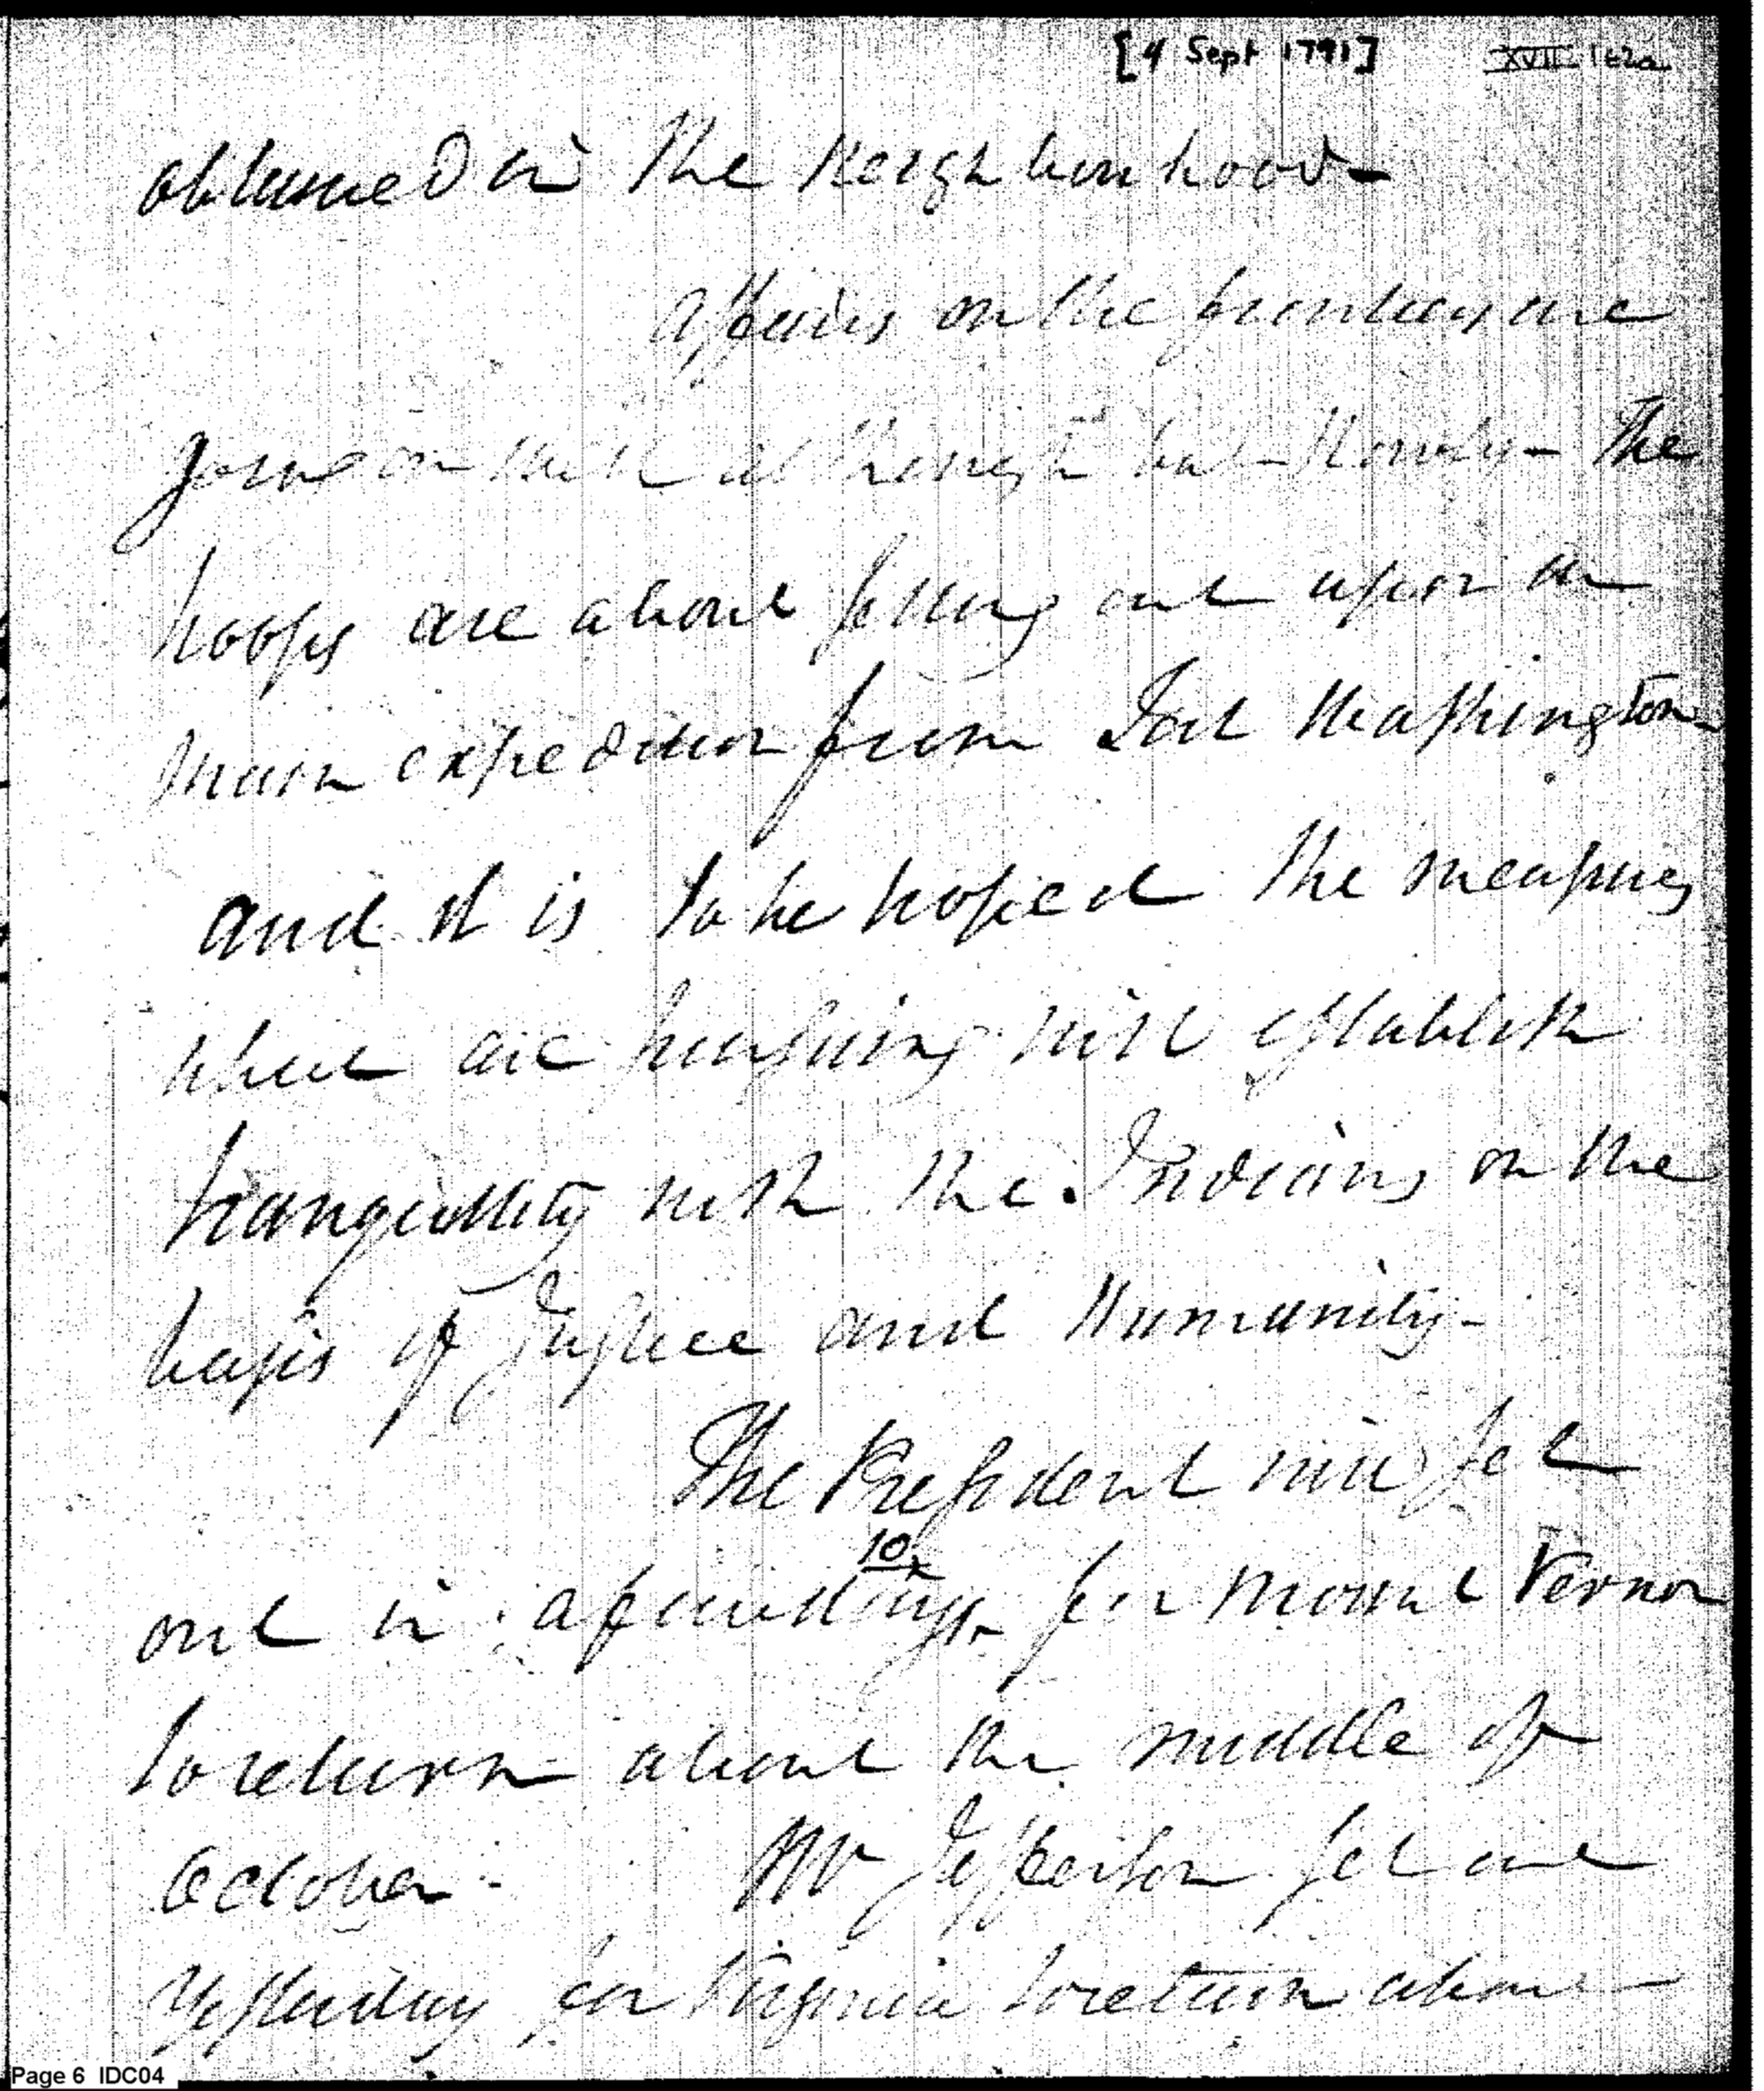 [4 Sept 1791] XVII 162a
obtained in the Neighbourhood—
Affairs on the frontiers are
going on well although but slowly— The
troops are about setting out upon the
main expedition from Fort Washington
and it is to be hoped the measures
which are pursuing will establish
tranquillity with the Indians on the
basis of Justice and Humanity—
The President will set
out in a fourth 10 days for Mount Vernon
to return about the middle of
October— Mr Jefferson set out
Yesterday for Virginia to return about
Page 6 IDC04